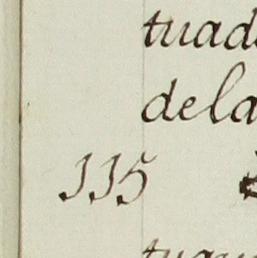 tuad
dela
115